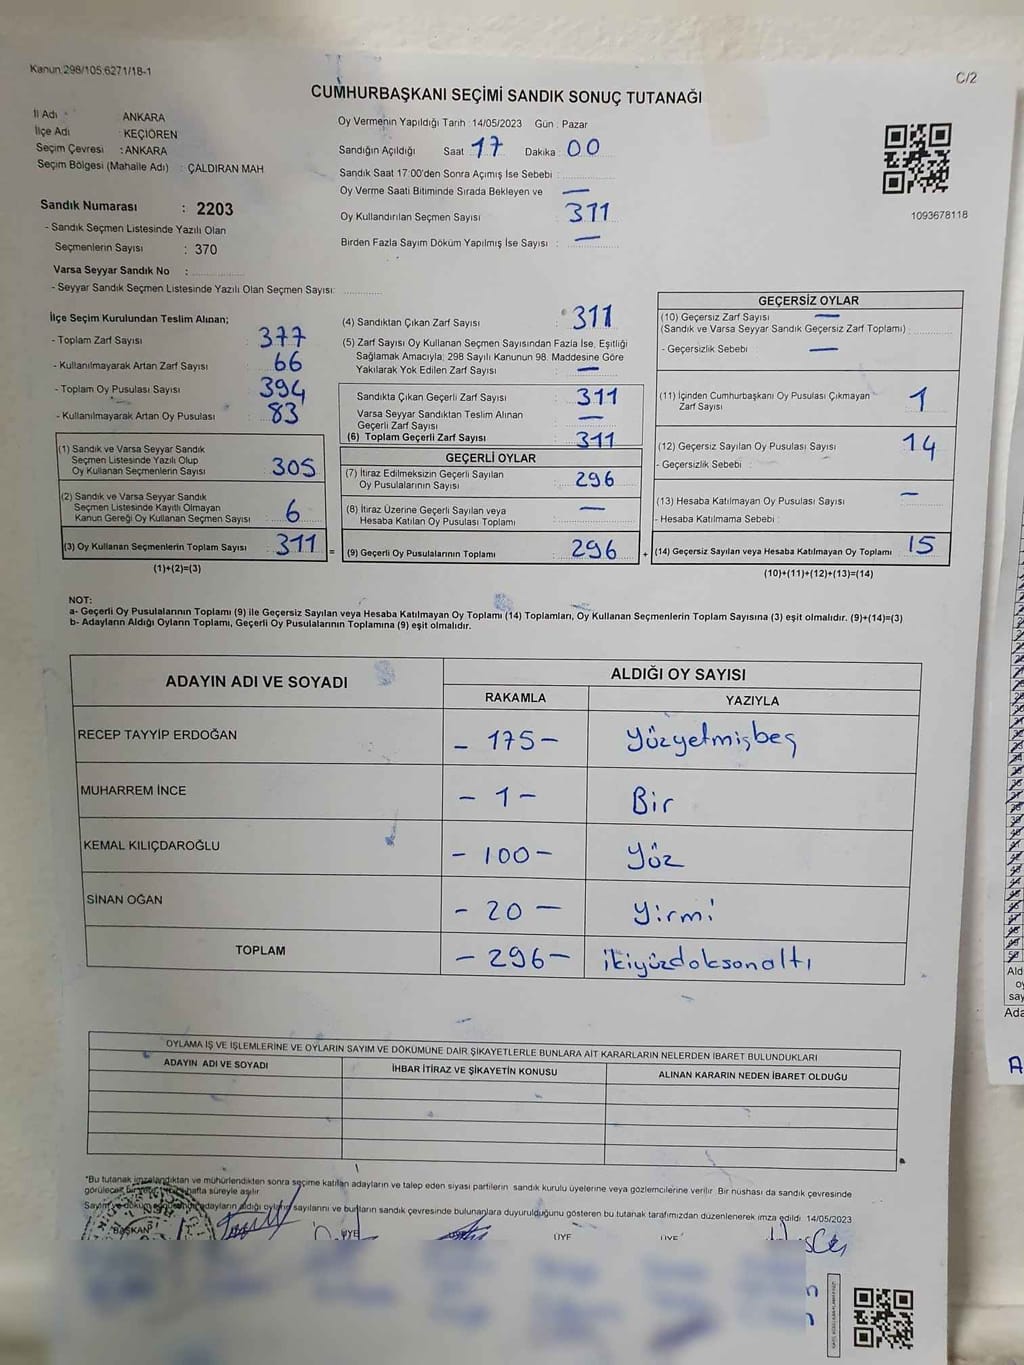 Kanun 298/105.6271/18-1
C/2
CUMHURBAŞKANI SEÇİMİ SANDIK SONUÇ TUTANAĞI
İl Adı : ANKARA
İlçe Adı : KEÇİÖREN
Seçim Çevresi : ANKARA
Seçim Bölgesi (Mahalle Adı) : ÇALDIRAN MAH
Sandık Numarası : 2203
- Sandık Seçmen Listesinde Yazılı Olan
Seçmenlerin Sayısı : 370
Varsa Seyyar Sandık No :
- Seyyar Sandık Seçmen Listesinde Yazılı Olan Seçmen Sayısı:
Oy Vermenin Yapıldığı Tarih : 14/05/2023 Gün : Pazar
Sandığın Açıldığı Saat 17 Dakika 00
Sandık Saat 17:00'den Sonra Açımış İse Sebebi :
Oy Verme Saati Bitiminde Sırada Bekleyen ve —
Oy Kullandırılan Seçmen Sayısı 311
Birden Fazla Sayım Döküm Yapılmış İse Sayısı : —
1093678118
İlçe Seçim Kurulundan Teslim Alınan;
- Toplam Zarf Sayısı : 377
- Kullanılmayarak Artan Zarf Sayısı : 66
- Toplam Oy Pusulası Sayısı : 394
- Kullanılmayarak Artan Oy Pusulası : 83
(1) Sandık ve Varsa Seyyar Sandık
Seçmen Listesinde Yazılı Olup
Oy Kullanan Seçmenlerin Sayısı : 305
(2) Sandık ve Varsa Seyyar Sandık
Seçmen Listesinde Kayıtlı Olmayan
Kanun Gereği Oy Kullanan Seçmen Sayısı : 6
(3) Oy Kullanan Seçmenlerin Toplam Sayısı : 311
(1)+(2)=(3)
=
(4) Sandıktan Çıkan Zarf Sayısı : 311
(5) Zarf Sayısı Oy Kullanan Seçmen Sayısından Fazla İse, Eşitliği
Sağlamak Amacıyla; 298 Sayılı Kanunun 98. Maddesine Göre
Yakılarak Yok Edilen Zarf Sayısı : —
Sandıkta Çıkan Geçerli Zarf Sayısı : 311
Varsa Seyyar Sandıktan Teslim Alınan
Geçerli Zarf Sayısı : —
(6) Toplam Geçerli Zarf Sayısı : 311
GEÇERLİ OYLAR
(7) İtiraz Edilmeksizin Geçerli Sayılan
Oy Pusulalarının Sayısı : 296
(8) İtiraz Üzerine Geçerli Sayılan veya
Hesaba Katılan Oy Pusulası Toplamı : —
(9) Geçerli Oy Pusulalarının Toplamı : 296
+
GEÇERSİZ OYLAR
(10) Geçersiz Zarf Sayısı : —
(Sandık ve Varsa Seyyar Sandık Geçersiz Zarf Toplamı)
- Geçersizlik Sebebi : —
(11) İçinden Cumhurbaşkanı Oy Pusulası Çıkmayan
Zarf Sayısı 1
(12) Geçersiz Sayılan Oy Pusulası Sayısı 14
- Geçersizlik Sebebi :
(13) Hesaba Katılmayan Oy Pusulası Sayısı —
- Hesaba Katılmama Sebebi :
(14) Geçersiz Sayılan veya Hesaba Katılmayan Oy Toplamı 15
(10)+(11)+(12)+(13)=(14)
NOT:
a- Geçerli Oy Pusulalarının Toplamı (9) ile Geçersiz Sayılan veya Hesaba Katılmayan Oy Toplamı (14) Toplamları, Oy Kullanan Seçmenlerin Toplam Sayısına (3) eşit olmalıdır. (9)+(14)=(3)
b- Adayların Aldığı Oyların Toplamı, Geçerli Oy Pusulalarının Toplamına (9) eşit olmalıdır.
ADAYIN ADI VE SOYADI
ALDIĞI OY SAYISI
RAKAMLA YAZIYLA
RECEP TAYYİP ERDOĞAN – 175 – Yüzyetmişbeş
MUHARREM İNCE – 1 – Bir
KEMAL KILIÇDAROĞLU – 100 – Yüz
SİNAN OĞAN – 20 – Yirmi
TOPLAM – 296 – ikiyüzdoksanaltı
OYLAMA İŞ VE İŞLEMLERİNE VE OYLARIN SAYIM VE DÖKÜMÜNE DAİR ŞİKAYETLERLE BUNLARA AİT KARARLARIN NELERDEN İBARET BULUNDUKLARI
ADAYIN ADI VE SOYADI İHBAR İTİRAZ VE ŞİKAYETİN KONUSU ALINAN KARARIN NEDEN İBARET OLDUĞU
*Bu tutanak imzalandıktan ve mühürlendikten sonra seçime katılan adayların ve talep eden siyasi partilerin sandık kurulu üyelerine veya gözlemcilerine verilir. Bir nüshası da sandık çevresinde
görülecek bir yere hafta süreyle asılır.
Sayım ve döküm adayların aldığı oyların sayılarını ve bunların sandık çevresinde bulunanlara duyurulduğunu gösteren bu tutanak tarafımızdan düzenlenerek imza edildi 14/05/2023
BAŞKAN ÜYE ÜYE ÜYE